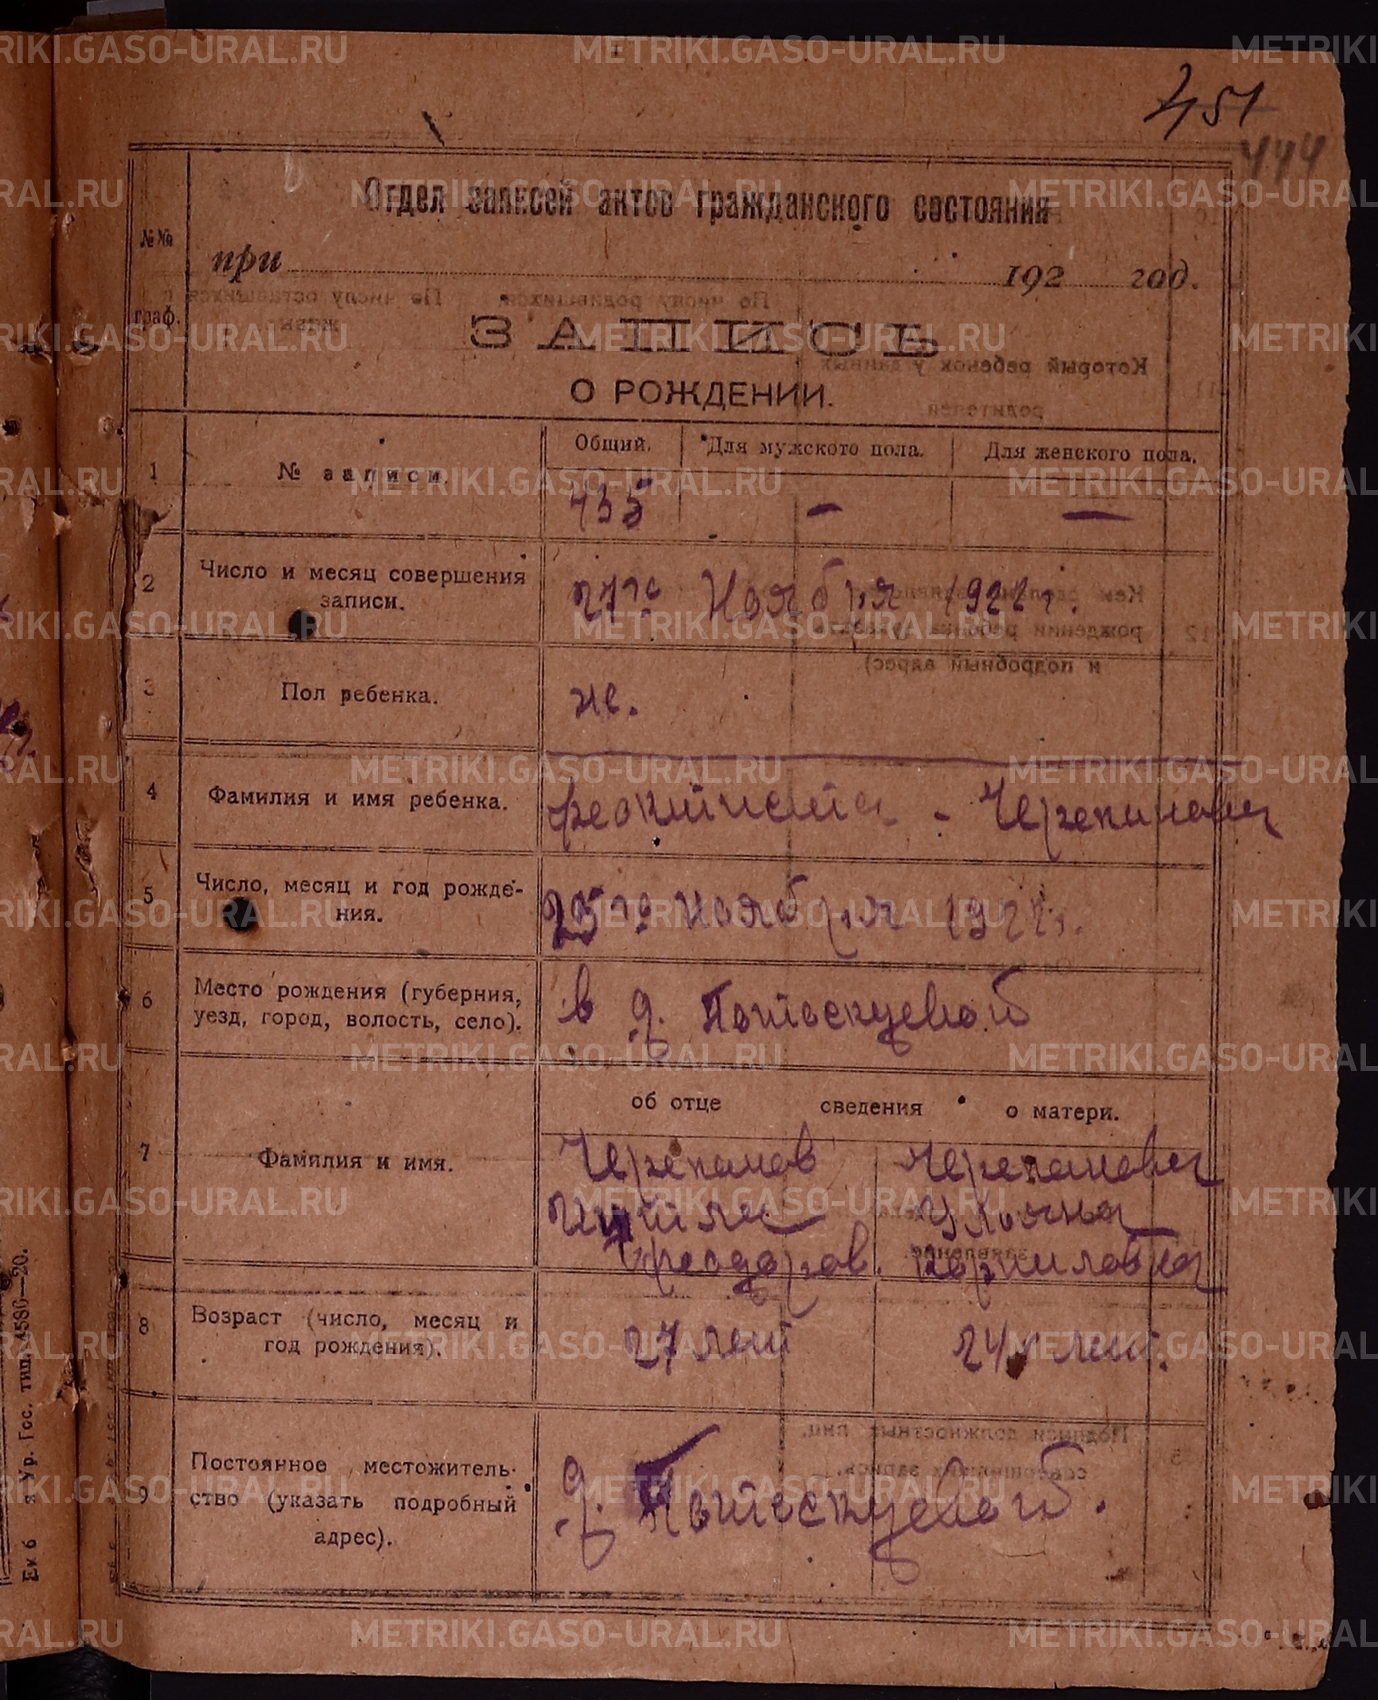 451
444
Отдел записей актов гражданского состояния
№№ граф.
при 192 год.
ЗАПИСЬ
О РОЖДЕНИИ.
1 № записи. Общий. Для мужского пола. Для женского пола.
435 — —
2 Число и месяц совершения записи. 27го Ноября 1922 г.
3 Пол ребенка. же.
4 Фамилия и имя ребенка. Феоктиста - Черепанова
5 Число, месяц и год рождения. 25го Ноября 1922 г.
6 Место рождения (губерния, уезд, город, волость, село). в д. Потоскуевой
об отце сведения о матери.
7 Фамилия и имя. Черепанов Черепанова
Ульяна
Феодоров. Корниловна
8 Возраст (число, месяц и год рождения). 27 лет 24 лет.
9 Постоянное местожительство (указать подробный адрес). д. Потоскуевой.
METRIKI.GASO-URAL.RU